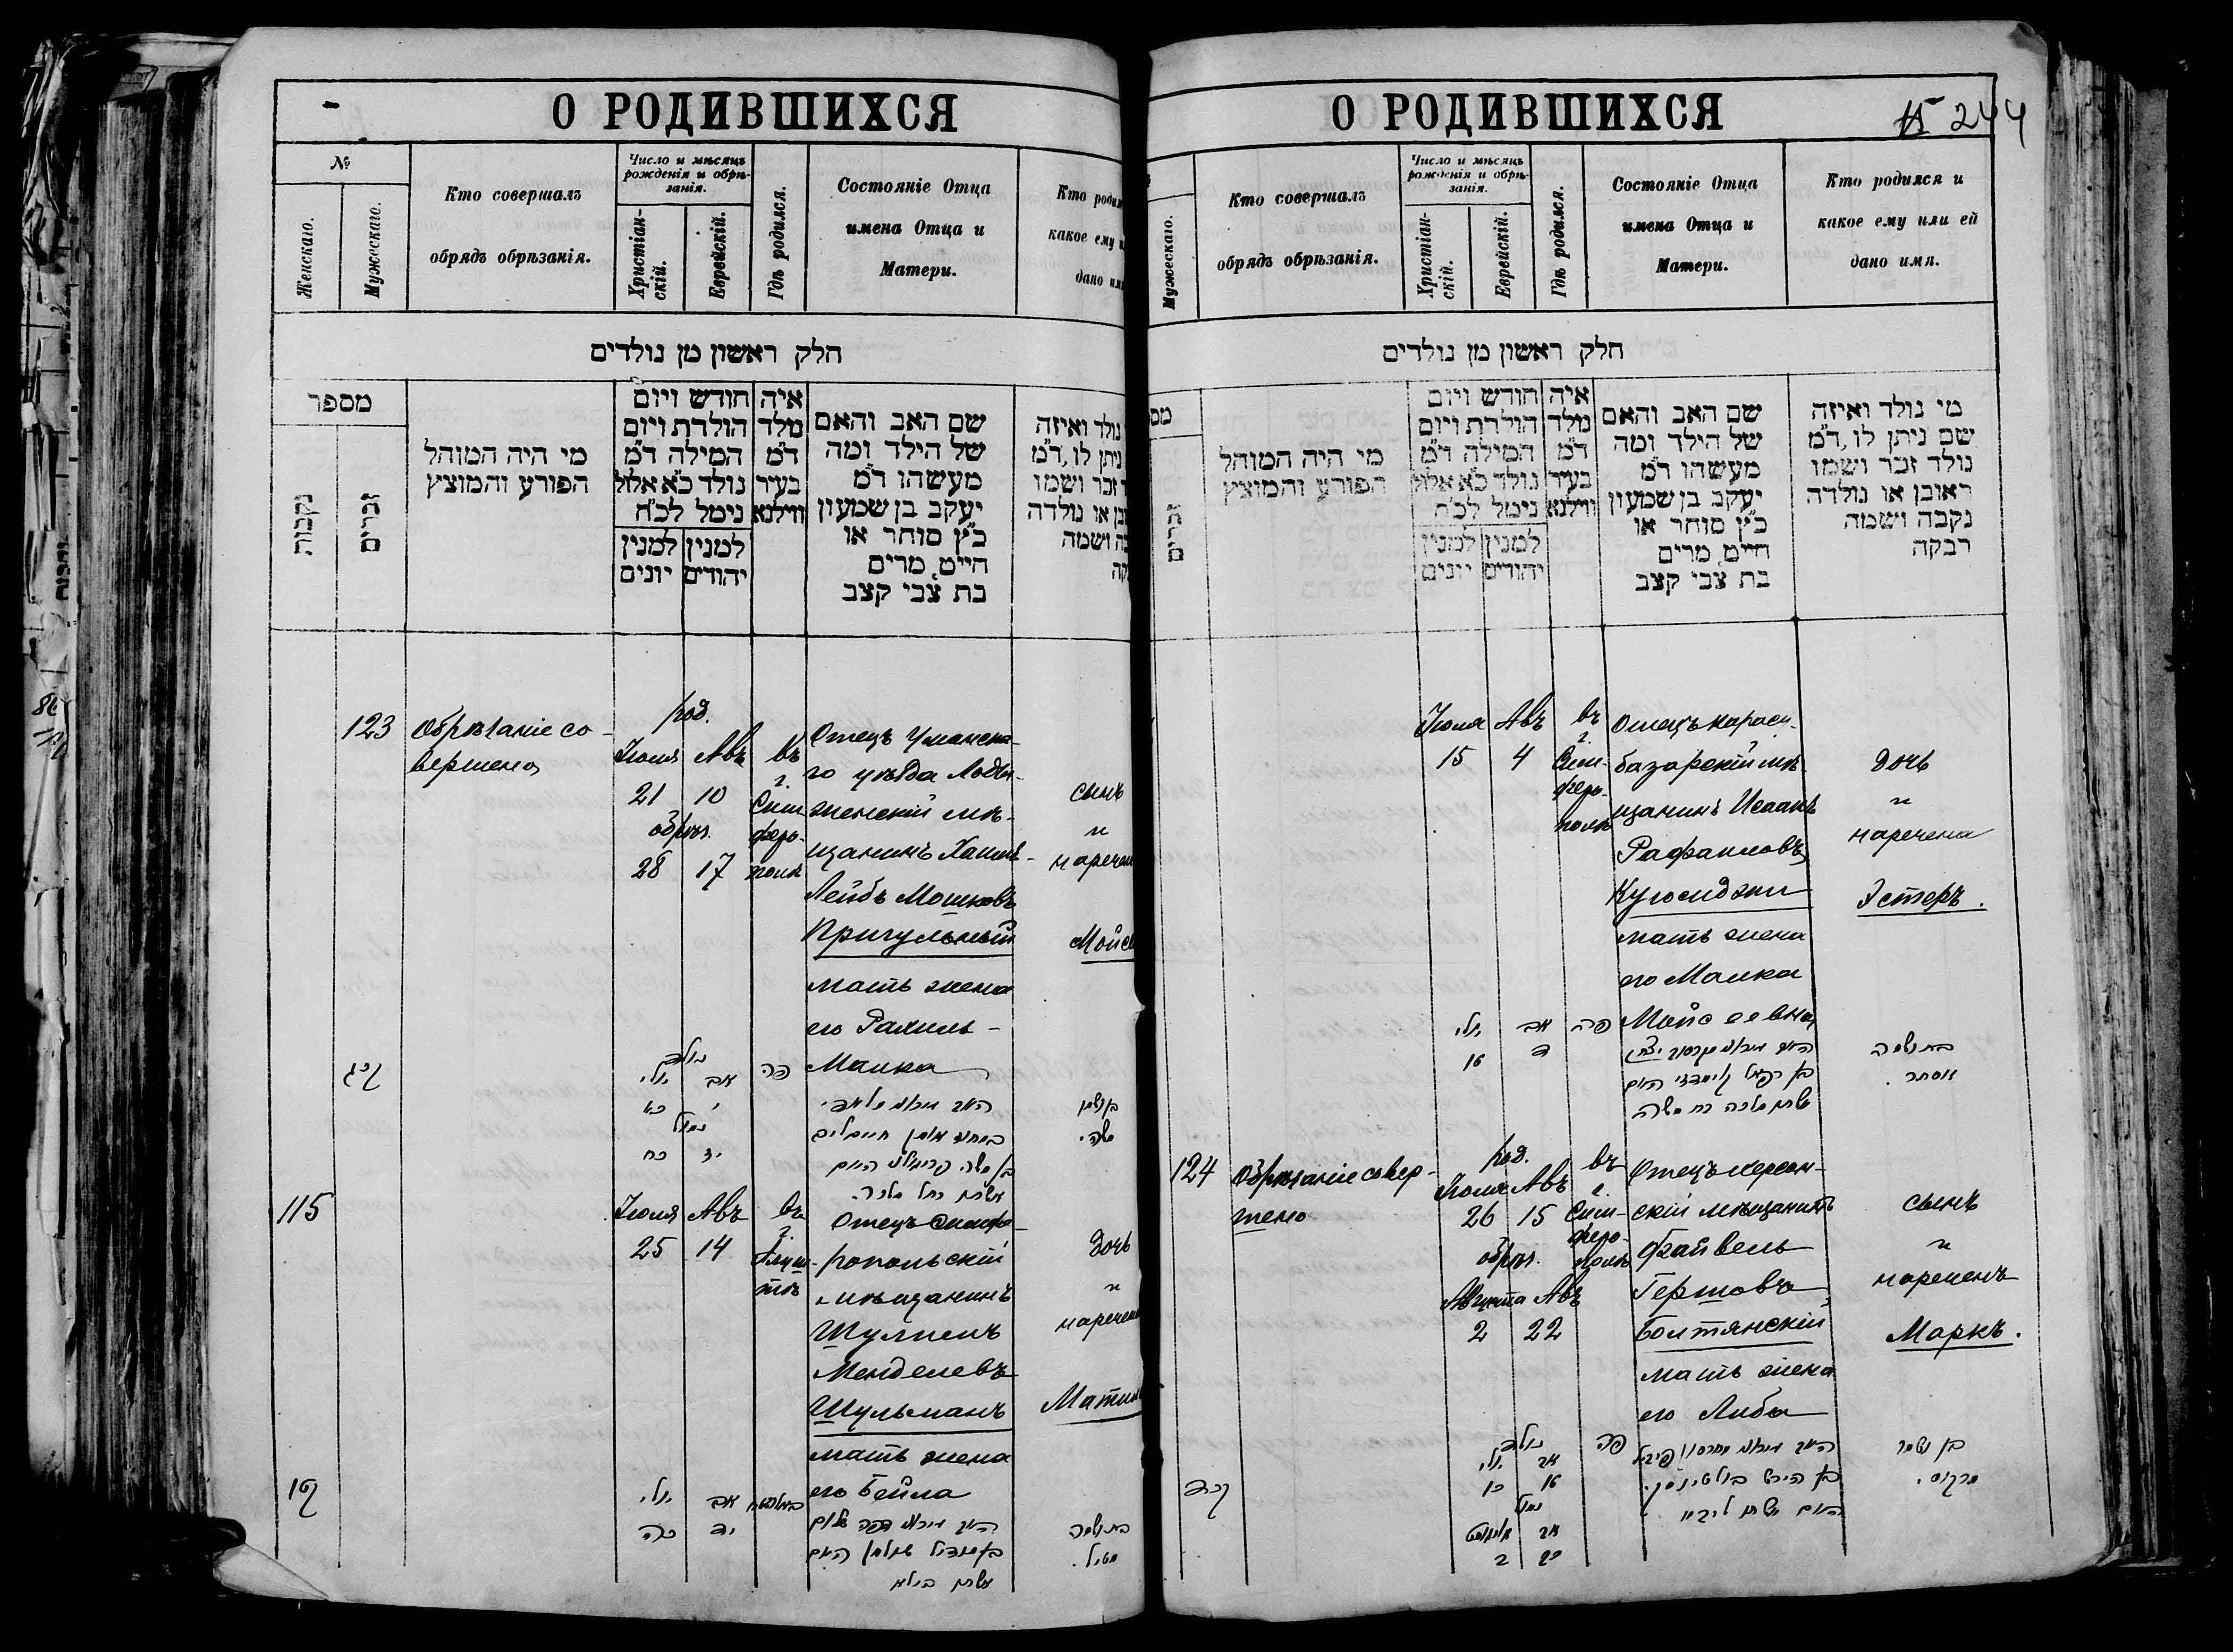 О РОДИВШИХСЯ
№
Женскаго.
Мужскаго.
Кто совершалъ
обрядъ обрѣзанія.
Число и мѣсяцъ
рожденія и обрѣ-
занія.
Христіан-
скій.
Еврейскій.
Гдѣ родился.
Состояніе Отца
имена Отца и
Матери.
Кто
какое ему
дано
חלק ראשון מן נולדים
מספר
נקבות
זכרים
מי היה המוהל
הפורע והמוצץ
חודש ויום
הולדת ויום
המילה ד"מ
נולד כ"א אלול
נימל לכ"ח
למנין
יהודים
למנין
יונים
איה
מלד
ד"מ
בעיר
ווילנא
שם האב והאם
של הילד ומה
מעשהו ד"מ
יעקב בן שמעון
כ"ץ סוחר או
חייט, מרים
בת צבי קצב
נולד ואיזה
ניתן לו, ד"מ
זכר ושמו
או נולדה
ושמה
123
Обрѣзаніе со-
вершено
род.
Іюля Авъ
21 10
обрѣз.
28 17
въ
г.
Сим-
феро-
полѣ
Отецъ Уманска-
го уѣзда Лады-
женскій мѣ-
щанинъ Хаимъ-
Лейбъ Мошковъ
Пригульный
мать жена
его Рахиль-
Малка
сынъ
и
нарече
Мойс
קכג
נולד
יולי אב
כא י
נמול
כח יז
פה
בן ושמו
משה.
115
Іюля Авъ
25 14
въ
г.
Алуш-
тѣ
Отецъ Симфе-
ропольскій
мѣщанинъ
Шулимъ
Менделевъ
Шульманъ
мать жена
его Бейла
дочь
и
наречена
Мати
קטו
יולי אב
כה יד
בת ושמה
О РОДИВШИХСЯ
244
Мужескаго.
Кто совершалъ
обрядъ обрѣзанія.
Число и мѣсяцъ
рожденія и обрѣ-
занія.
Христіан-
скій.
Еврейскій.
Гдѣ родился.
Состояніе Отца
имена Отца и
Матери.
Кто родился и
какое ему или ей
дано имя.
חלק ראשון מן נולדים
זכרים
מי היה המוהל
הפורע והמוצץ
חודש ויום
הולדת ויום
המילה ד"מ
נולד כ"א אלול
נימל לכ"ח
למנין
יהודים
למנין
יונים
איה
מלד
ד"מ
בעיר
ווילנא
שם האב והאם
של הילד ומה
מעשהו ד"מ
יעקב בן שמעון
כ"ץ סוחר או
חייט, מרים
בת צבי קצב
מי נולד ואיזה
שם ניתן לו, ד"מ
נולד זכר ושמו
ראובן או נולדה
נקבה ושמה
רבקה
Іюля Авъ
15 4
въ
г.
Сим-
феро-
полѣ
Отецъ карасу-
базарскій мѣ-
щанинъ Исаакъ
Рафаиловъ
мать жена
его Малка
Мойсеевна
дочь
и
наречена
Эстеръ.
יולי אב
טו ד
פה
בת ושמה
אסתר.
124
Обрѣзаніе совер-
шено
род.
Іюля Авъ
26 15
обрѣз.
Августа Авъ
2 22
въ
г.
Сим-
феро-
полѣ
Отецъ херсон-
скій мѣщанинъ
Файвель
Гершовъ
Болтянскій
мать жена
его Либа
сынъ
и
нареченъ
Маркъ.
קכד
נולד
יולי אב
כו טו
נמול
אויגוסט אב
ב כב
פה
בן ושמו
מרקוס.